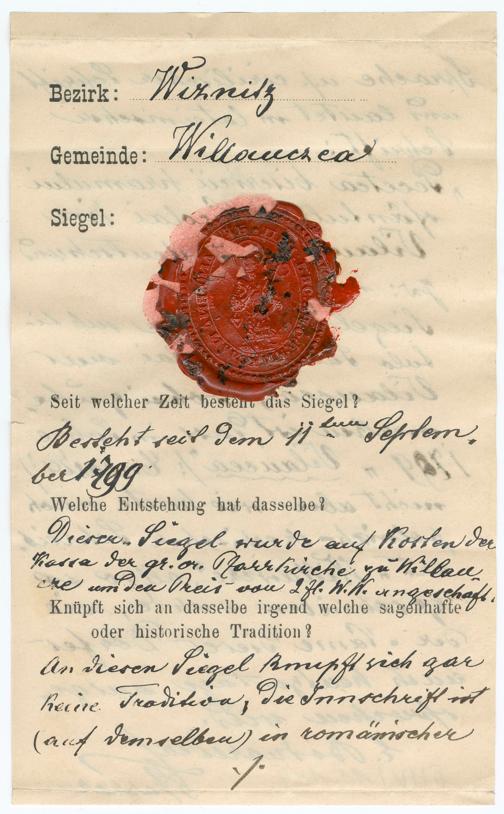 Bezirk: Wiznitz
Gemeinde: Willawczea
Siegel:
Seit welcher Zeit besteht das Siegel?
Besteht seit dem 11ten Septem-
ber 1799.
Welche Entstehung hat dasselbe?
Dieser Siegel wurde auf Kosten der
Kassa der gr. or. Pfarrkirche zu Willaw
cze um den Preis von 2 fl. W.W. angeschaft.
Knüpft sich an dasselbe irgend welche sagenhafte
oder historische Tradition?
An diesen Siegel knüpft sich gar
keine Tradition, die Innschrift ist
(auf demselben) in romänischer
./.